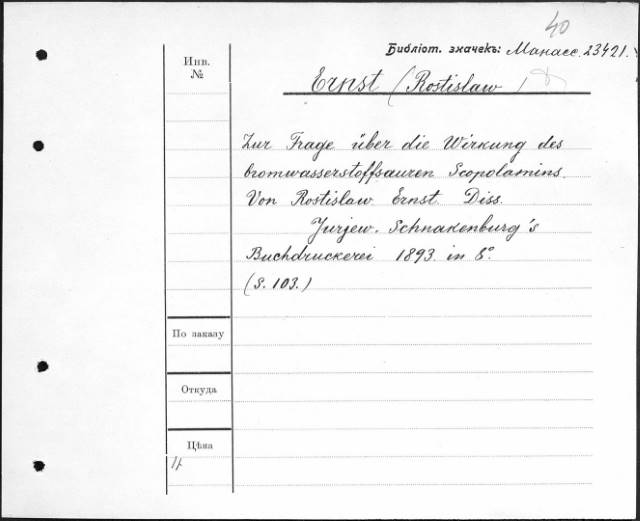 40
Библіот. значекъ: Манасс. 23421.
Инв.
№
Ernst (Rostislaw)
Zur Frage über die Wirkung des
bromwasserstoffsauren Scopolamins.
Von Rostislaw Ernst. Diss.
Jurjew. Schnakenburg's
Buchdruckerei 1893. in 8°.
(S. 103.)
По заказу
Откуда
Цѣна